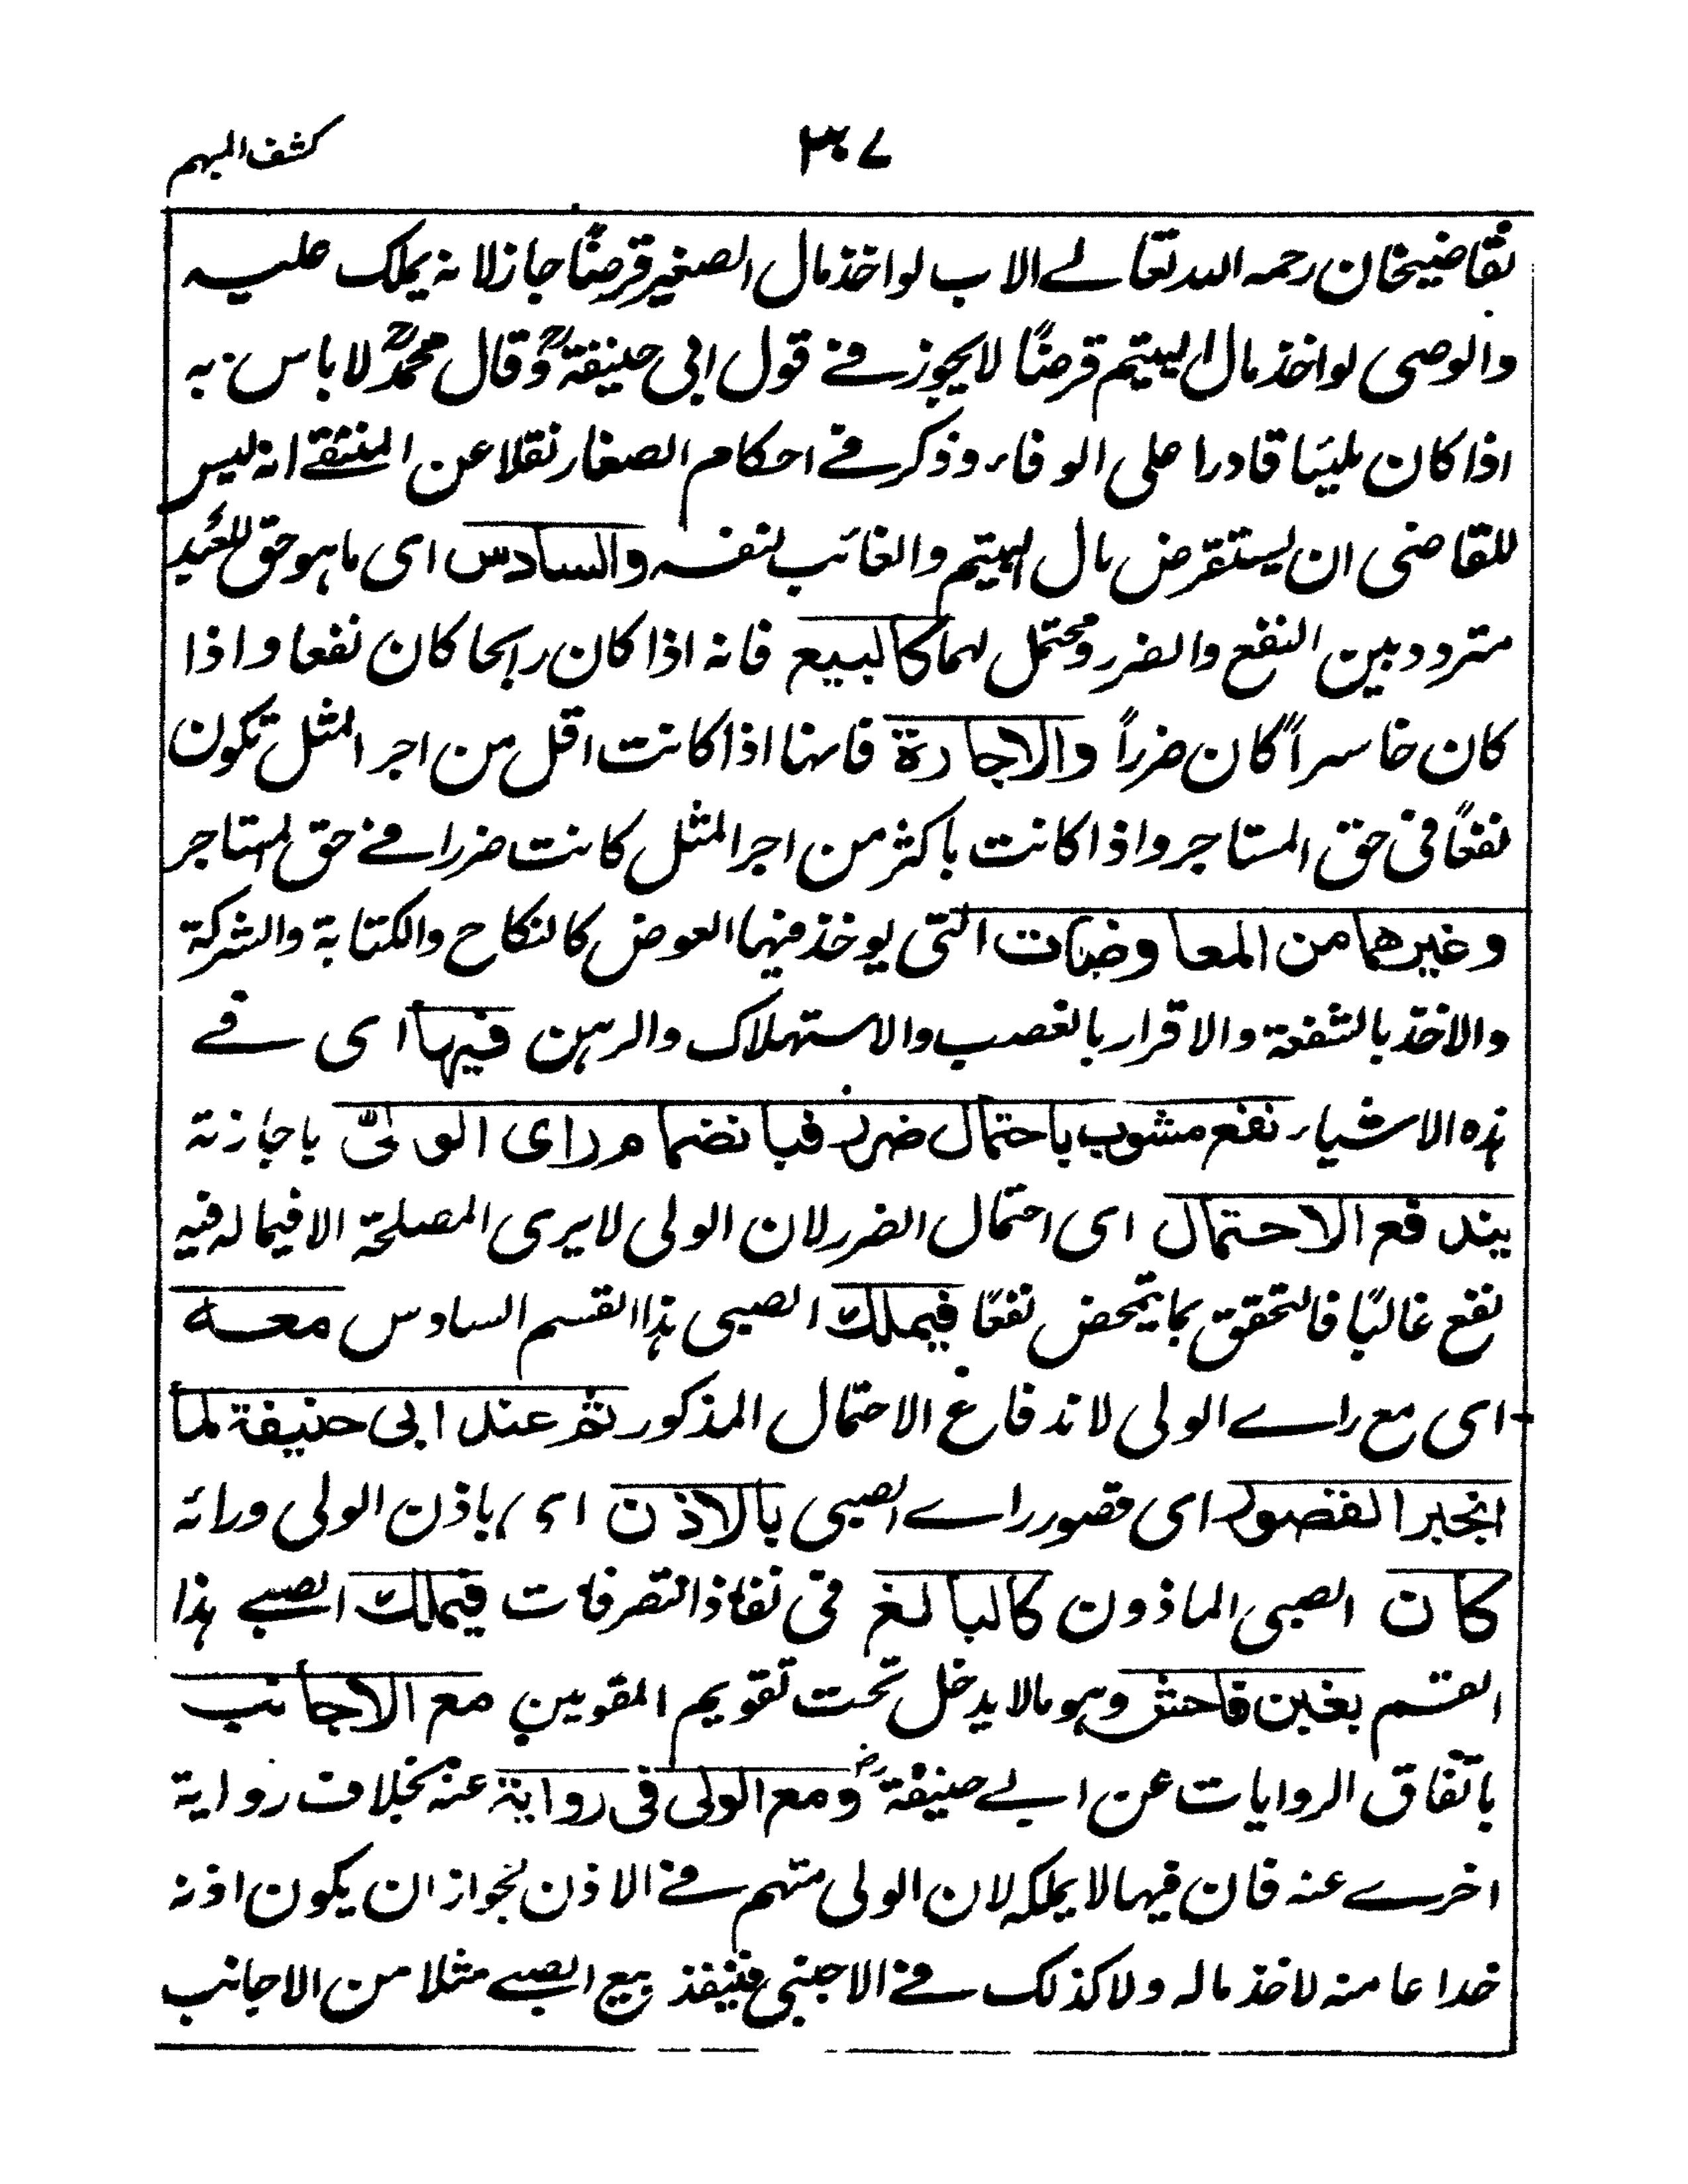 كشف المبهم
٣٠٧
لقاضيخان رحمه الله تعالے الاب لو اخذ مال الصغير قرضًا جاز لانه يملك عليه
والوصى لو اخذ مال اليتيم قرضًا لا يجوز فے قول ابى حنيفةؒ وقال محمدؒ لا باس به
اذا كان مليًا قادرا على الوفاء وذكر فے احكام الصغار نقلا عن المنتقے انه ليس
للقاضى ان يستقرض مال اليتيم والغائب لنفسه والسادس اى ما هو حق للعبد
متردد بين النفع والضرر ومحتمل لهما كالبيع فانه اذا كان رابحا كان نفعا واذا
كان خاسراً كان ضرراً والاجارة فانها اذا كانت اقل من اجر المثل تكون
نفعًا فى حق المستاجر واذا كانت باكثر من اجر المثل كانت ضررا فے حق المستاجر
وغيرهما من المعاوضات التى يوخذ فيها العوض كالنكاح والكتابة والشركة
والاخذ بالشفعة والاقرار بالغصب والاستهلاك والرهن فيها اى فے
هذه الاشياء نفع مشوب باحتمال ضرر فبانضمام راى الولىّ باجازته
يندفع الاحتمال اى احتمال الضرر لان الولى لا يرى المصلحة الا فيما له فيه
نفع غالبًا فالتحقق بما يتمحض نفعًا فيملك الصبى هذا القسم السادس معه
اى مع راے الولى لاندفاع الاحتمال المذكور ثم عند ابى حنيفة لما
انجبر القصور اى قصور راے الصبى بالاذن اى باذن الولى ورائه
كان الصبى الماذون كالبالغ فى نفاذ التصرفات فيملك الصبے هذا
القسم بغبن فاحش وهو ما لا يدخل تحت تقويم المقومين مع الاجانب
باتفاق الروايات عن ابے حنيفةؓ ومع الولى فى رواية عنه بخلاف رواية
اخرے عنه فان فيها لا يملكه لان الولى متهم فے الاذن لجواز ان يكون اذنه
خداعا منه لاخذ ماله ولا كذلك فے الاجنبى فينفذ بيع الصبے مثلا من الاجانب